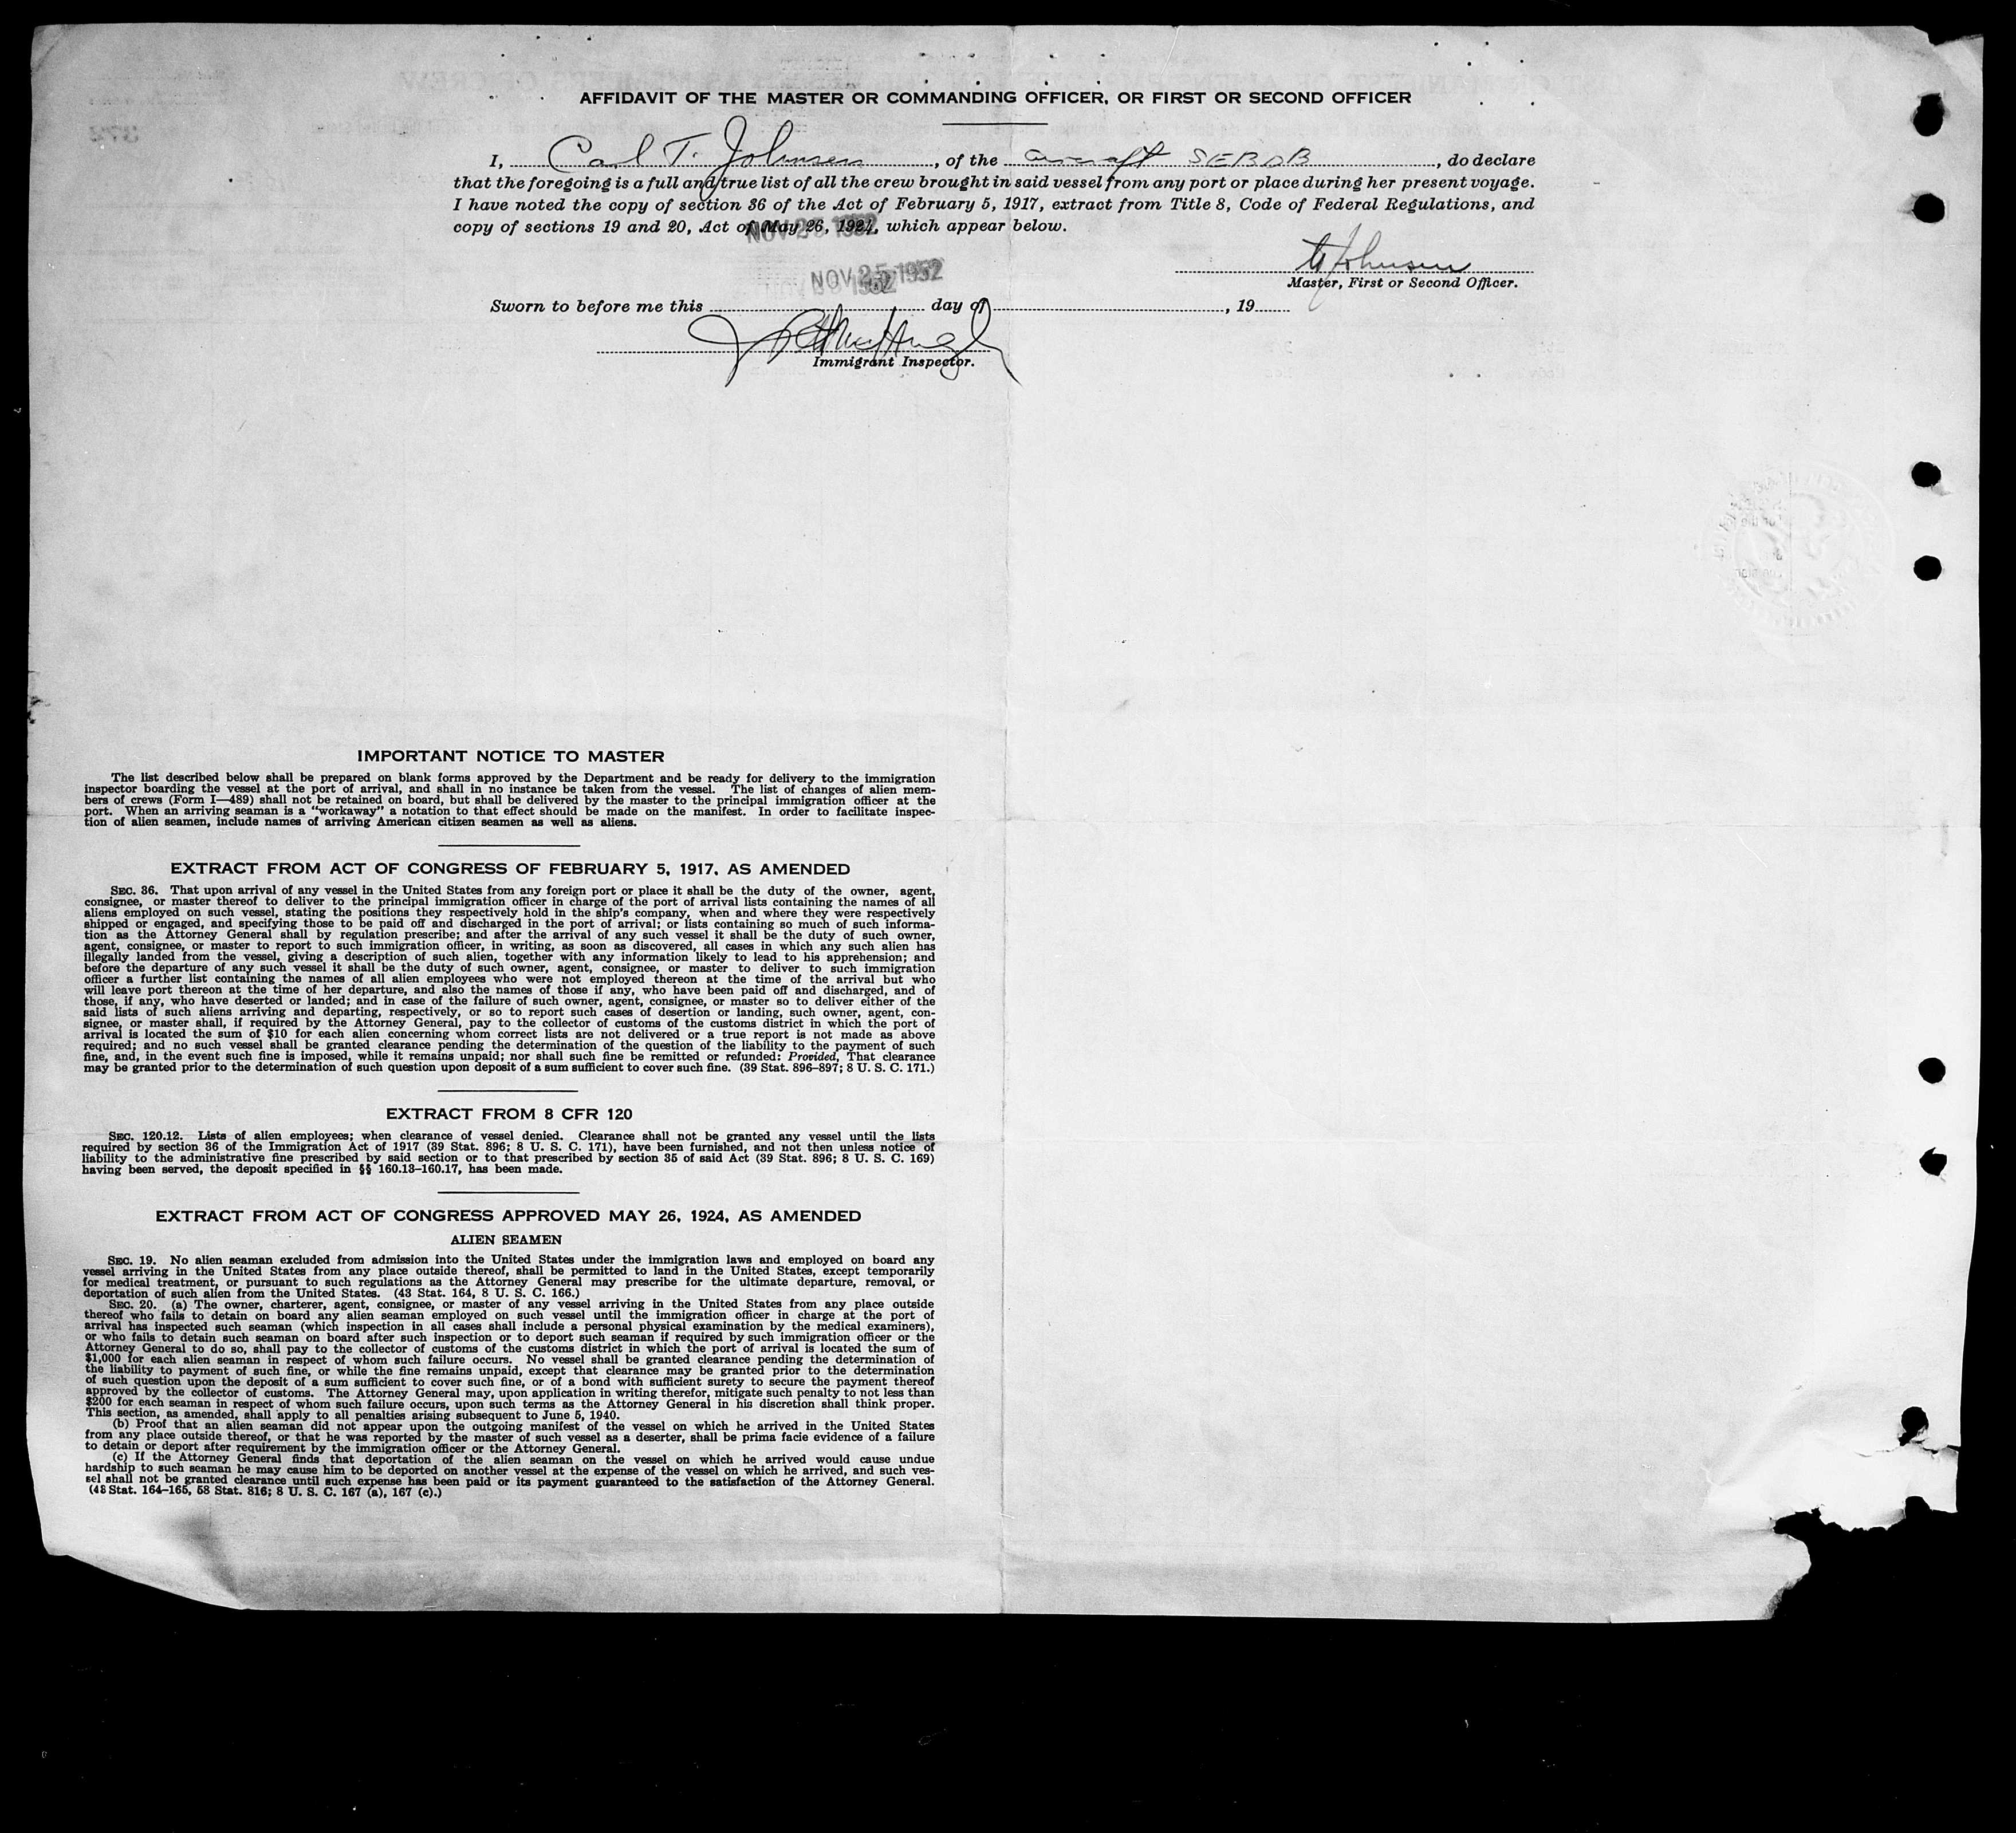 AFFIDAVIT OF THE MASTER OR COMMANDING OFFICER, OR FIRST OR SECOND OFFICER
I, Carl T. Johnsen, of the aircraft SEBDB, do declare
that the foregoing is a full and true list of all the crew brought in said vessel from any port or place during her present voyage.
I have noted the copy of section 36 of the Act of February 5, 1917, extract from Title 8, Code of Federal Regulations, and
copy of sections 19 and 20, Act of May 26, 1924, which appear below.
NOV 25 1952
Johnsen
NOV 25 1952
Master, First or Second Officer.
Sworn to before me this day of , 19
Immigrant Inspector.
IMPORTANT NOTICE TO MASTER
The list described below shall be prepared on blank forms approved by the Department and be ready for delivery to the immigration
inspector boarding the vessel at the port of arrival, and shall in no instance be taken from the vessel. The list of changes of alien mem-
bers of crews (Form I—489) shall not be retained on board, but shall be delivered by the master to the principal immigration officer at the
port. When an arriving seaman is a "workaway" a notation to that effect should be made on the manifest. In order to facilitate inspec-
tion of alien seamen, include names of arriving American citizen seamen as well as aliens.
EXTRACT FROM ACT OF CONGRESS OF FEBRUARY 5, 1917, AS AMENDED
SEC. 36. That upon arrival of any vessel in the United States from any foreign port or place it shall be the duty of the owner, agent,
consignee, or master thereof to deliver to the principal immigration officer in charge of the port of arrival lists containing the names of all
aliens employed on such vessel, stating the positions they respectively hold in the ship's company, when and where they were respectively
shipped or engaged, and specifying those to be paid off and discharged in the port of arrival; or lists containing so much of such informa-
tion as the Attorney General shall by regulation prescribe; and after the arrival of any such vessel it shall be the duty of such owner,
agent, consignee, or master to report to such immigration officer, in writing, as soon as discovered, all cases in which any such alien has
illegally landed from the vessel, giving a description of such alien, together with any information likely to lead to his apprehension; and
before the departure of any such vessel it shall be the duty of such owner, agent, consignee, or master to deliver to such immigration
officer a further list containing the names of all alien employees who were not employed thereon at the time of the arrival but who
will leave port thereon at the time of her departure, and also the names of those if any, who have been paid off and discharged, and of
those, if any, who have deserted or landed; and in case of the failure of such owner, agent, consignee, or master so to deliver either of the
said lists of such aliens arriving and departing, respectively, or so to report such cases of desertion or landing, such owner, agent, con-
signee, or master shall, if required by the Attorney General, pay to the collector of customs of the customs district in which the port of
arrival is located the sum of $10 for each alien concerning whom correct lists are not delivered or a true report is not made as above
required; and no such vessel shall be granted clearance pending the determination of the question of the liability to the payment of such
fine, and, in the event such fine is imposed, while it remains unpaid; nor shall such fine be remitted or refunded: Provided, That clearance
may be granted prior to the determination of such question upon deposit of a sum sufficient to cover such fine. (39 Stat. 896-897; 8 U. S. C. 171.)
EXTRACT FROM 8 CFR 120
SEC. 120.12. Lists of alien employees; when clearance of vessel denied. Clearance shall not be granted any vessel until the lists
required by section 36 of the Immigration Act of 1917 (39 Stat. 896; 8 U. S. C. 171), have been furnished, and not then unless notice of
liability to the administrative fine prescribed by said section or to that prescribed by section 35 of said Act (39 Stat. 896; 8 U. S. C. 169)
having been served, the deposit specified in §§ 160.13-160.17, has been made.
EXTRACT FROM ACT OF CONGRESS APPROVED MAY 26, 1924, AS AMENDED
ALIEN SEAMEN
SEC. 19. No alien seaman excluded from admission into the United States under the immigration laws and employed on board any
vessel arriving in the United States from any place outside thereof, shall be permitted to land in the United States, except temporarily
for medical treatment, or pursuant to such regulations as the Attorney General may prescribe for the ultimate departure, removal, or
deportation of such alien from the United States. (43 Stat. 164, 8 U. S. C. 166.)
SEC. 20. (a) The owner, charterer, agent, consignee, or master of any vessel arriving in the United States from any place outside
thereof who fails to detain on board any alien seaman employed on such vessel until the immigration officer in charge at the port of
arrival has inspected such seaman (which inspection in all cases shall include a personal physical examination by the medical examiners),
or who fails to detain such seaman on board after such inspection or to deport such seaman if required by such immigration officer or the
Attorney General to do so, shall pay to the collector of customs of the customs district in which the port of arrival is located the sum of
$1,000 for each alien seaman in respect of whom such failure occurs. No vessel shall be granted clearance pending the determination of
the liability to payment of such fine, or while the fine remains unpaid, except that clearance may be granted prior to the determination
of such question upon the deposit of a sum sufficient to cover such fine, or of a bond with sufficient surety to secure the payment thereof
approved by the collector of customs. The Attorney General may, upon application in writing therefor, mitigate such penalty to not less than
$200 for each seaman in respect of whom such failure occurs, upon such terms as the Attorney General in his discretion shall think proper.
This section, as amended, shall apply to all penalties arising subsequent to June 5, 1940.
(b) Proof that an alien seaman did not appear upon the outgoing manifest of the vessel on which he arrived in the United States
from any place outside thereof, or that he was reported by the master of such vessel as a deserter, shall be prima facie evidence of a failure
to detain or deport after requirement by the immigration officer or the Attorney General.
(c) If the Attorney General finds that deportation of the alien seaman on the vessel on which he arrived would cause undue
hardship to such seaman he may cause him to be deported on another vessel at the expense of the vessel on which he arrived, and such ves-
sel shall not be granted clearance until such expense has been paid or its payment guaranteed to the satisfaction of the Attorney General.
(43 Stat. 164-165, 58 Stat. 816; 8 U. S. C. 167 (a), 167 (c).)